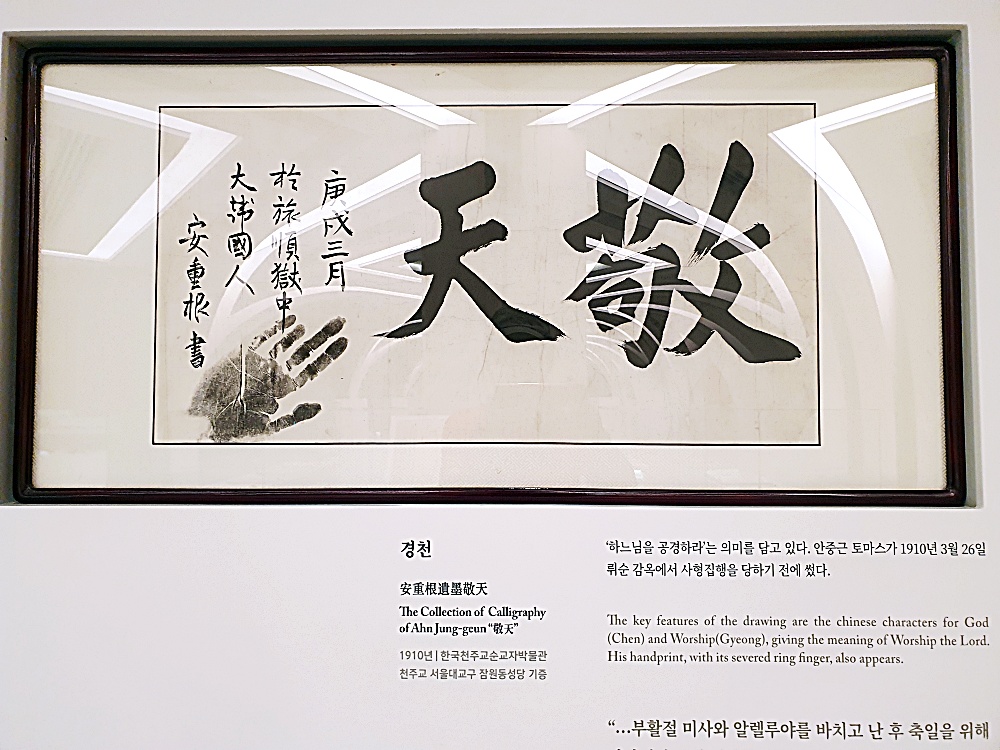 敬天
庚戌三月
於旅順獄中
大韓國人
安重根書
경천
安重根遺墨敬天
The Collection of Calligraphy
of Ahn Jung-geun “敬天”
1910년 | 한국천주교순교자박물관
천주교 서울대교구 잠원동성당 기증
‘하느님을 공경하라’는 의미를 담고 있다. 안중근 토마스가 1910년 3월 26일
뤼순 감옥에서 사형집행을 당하기 전에 썼다.
The key features of the drawing are the chinese characters for God
(Chen) and Worship(Gyeong), giving the meaning of Worship the Lord.
His handprint, with its severed ring finger, also appears.
“…부활절 미사와 알렐루야를 바치고 난 후 축일을 위해